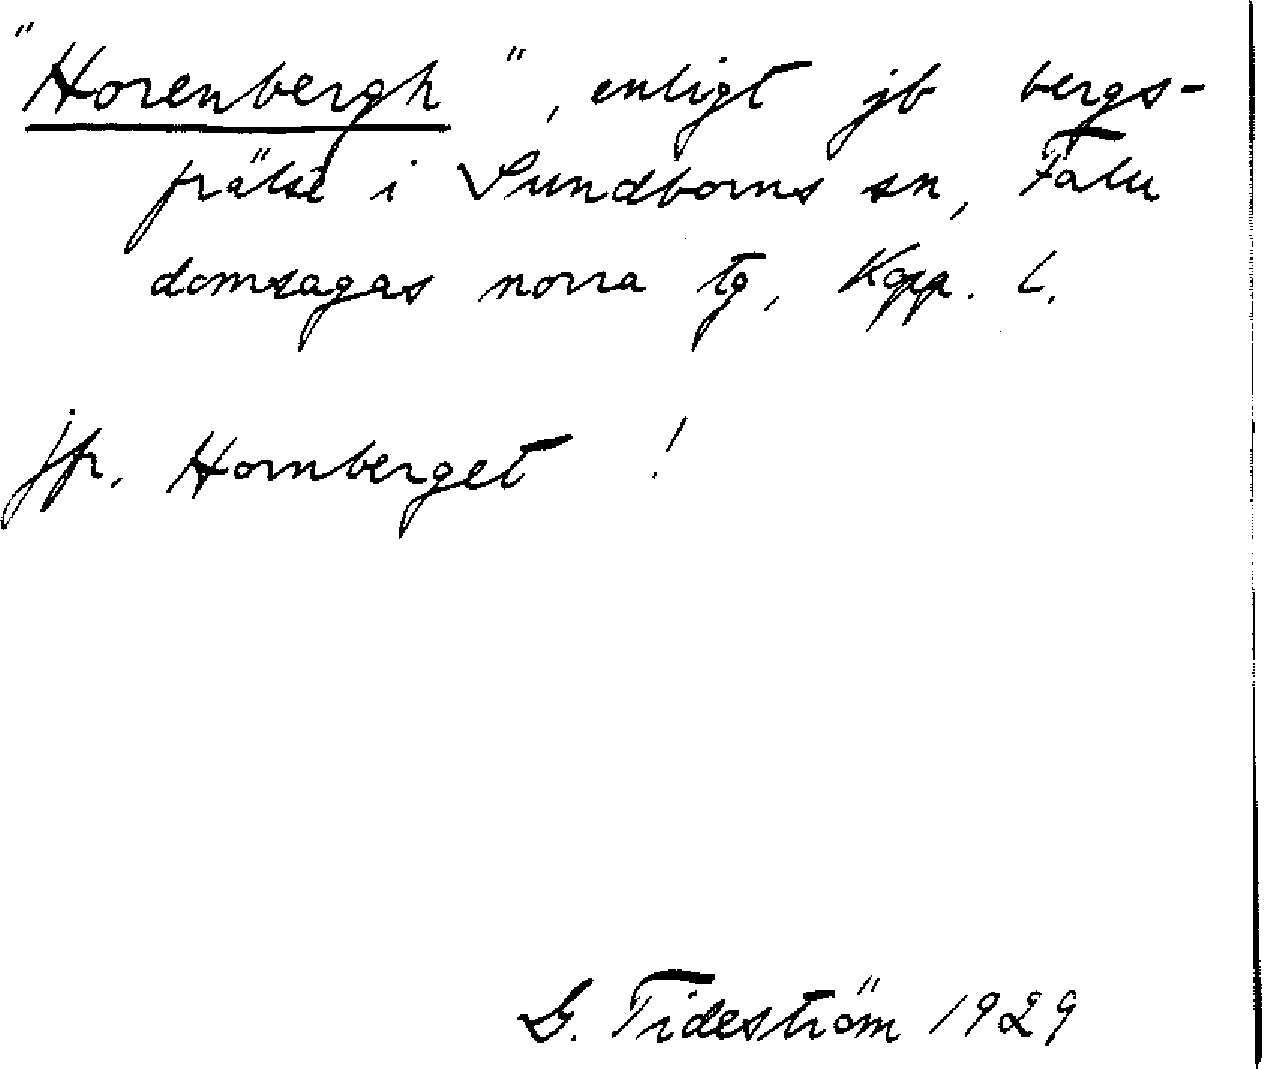 "Horenbergh", enligt jb bergs-
frälse i Sundborns sn, Falu
domsagas norra tg, Kopp. l.
jfr. Hornberget !
G. Tideström 1929